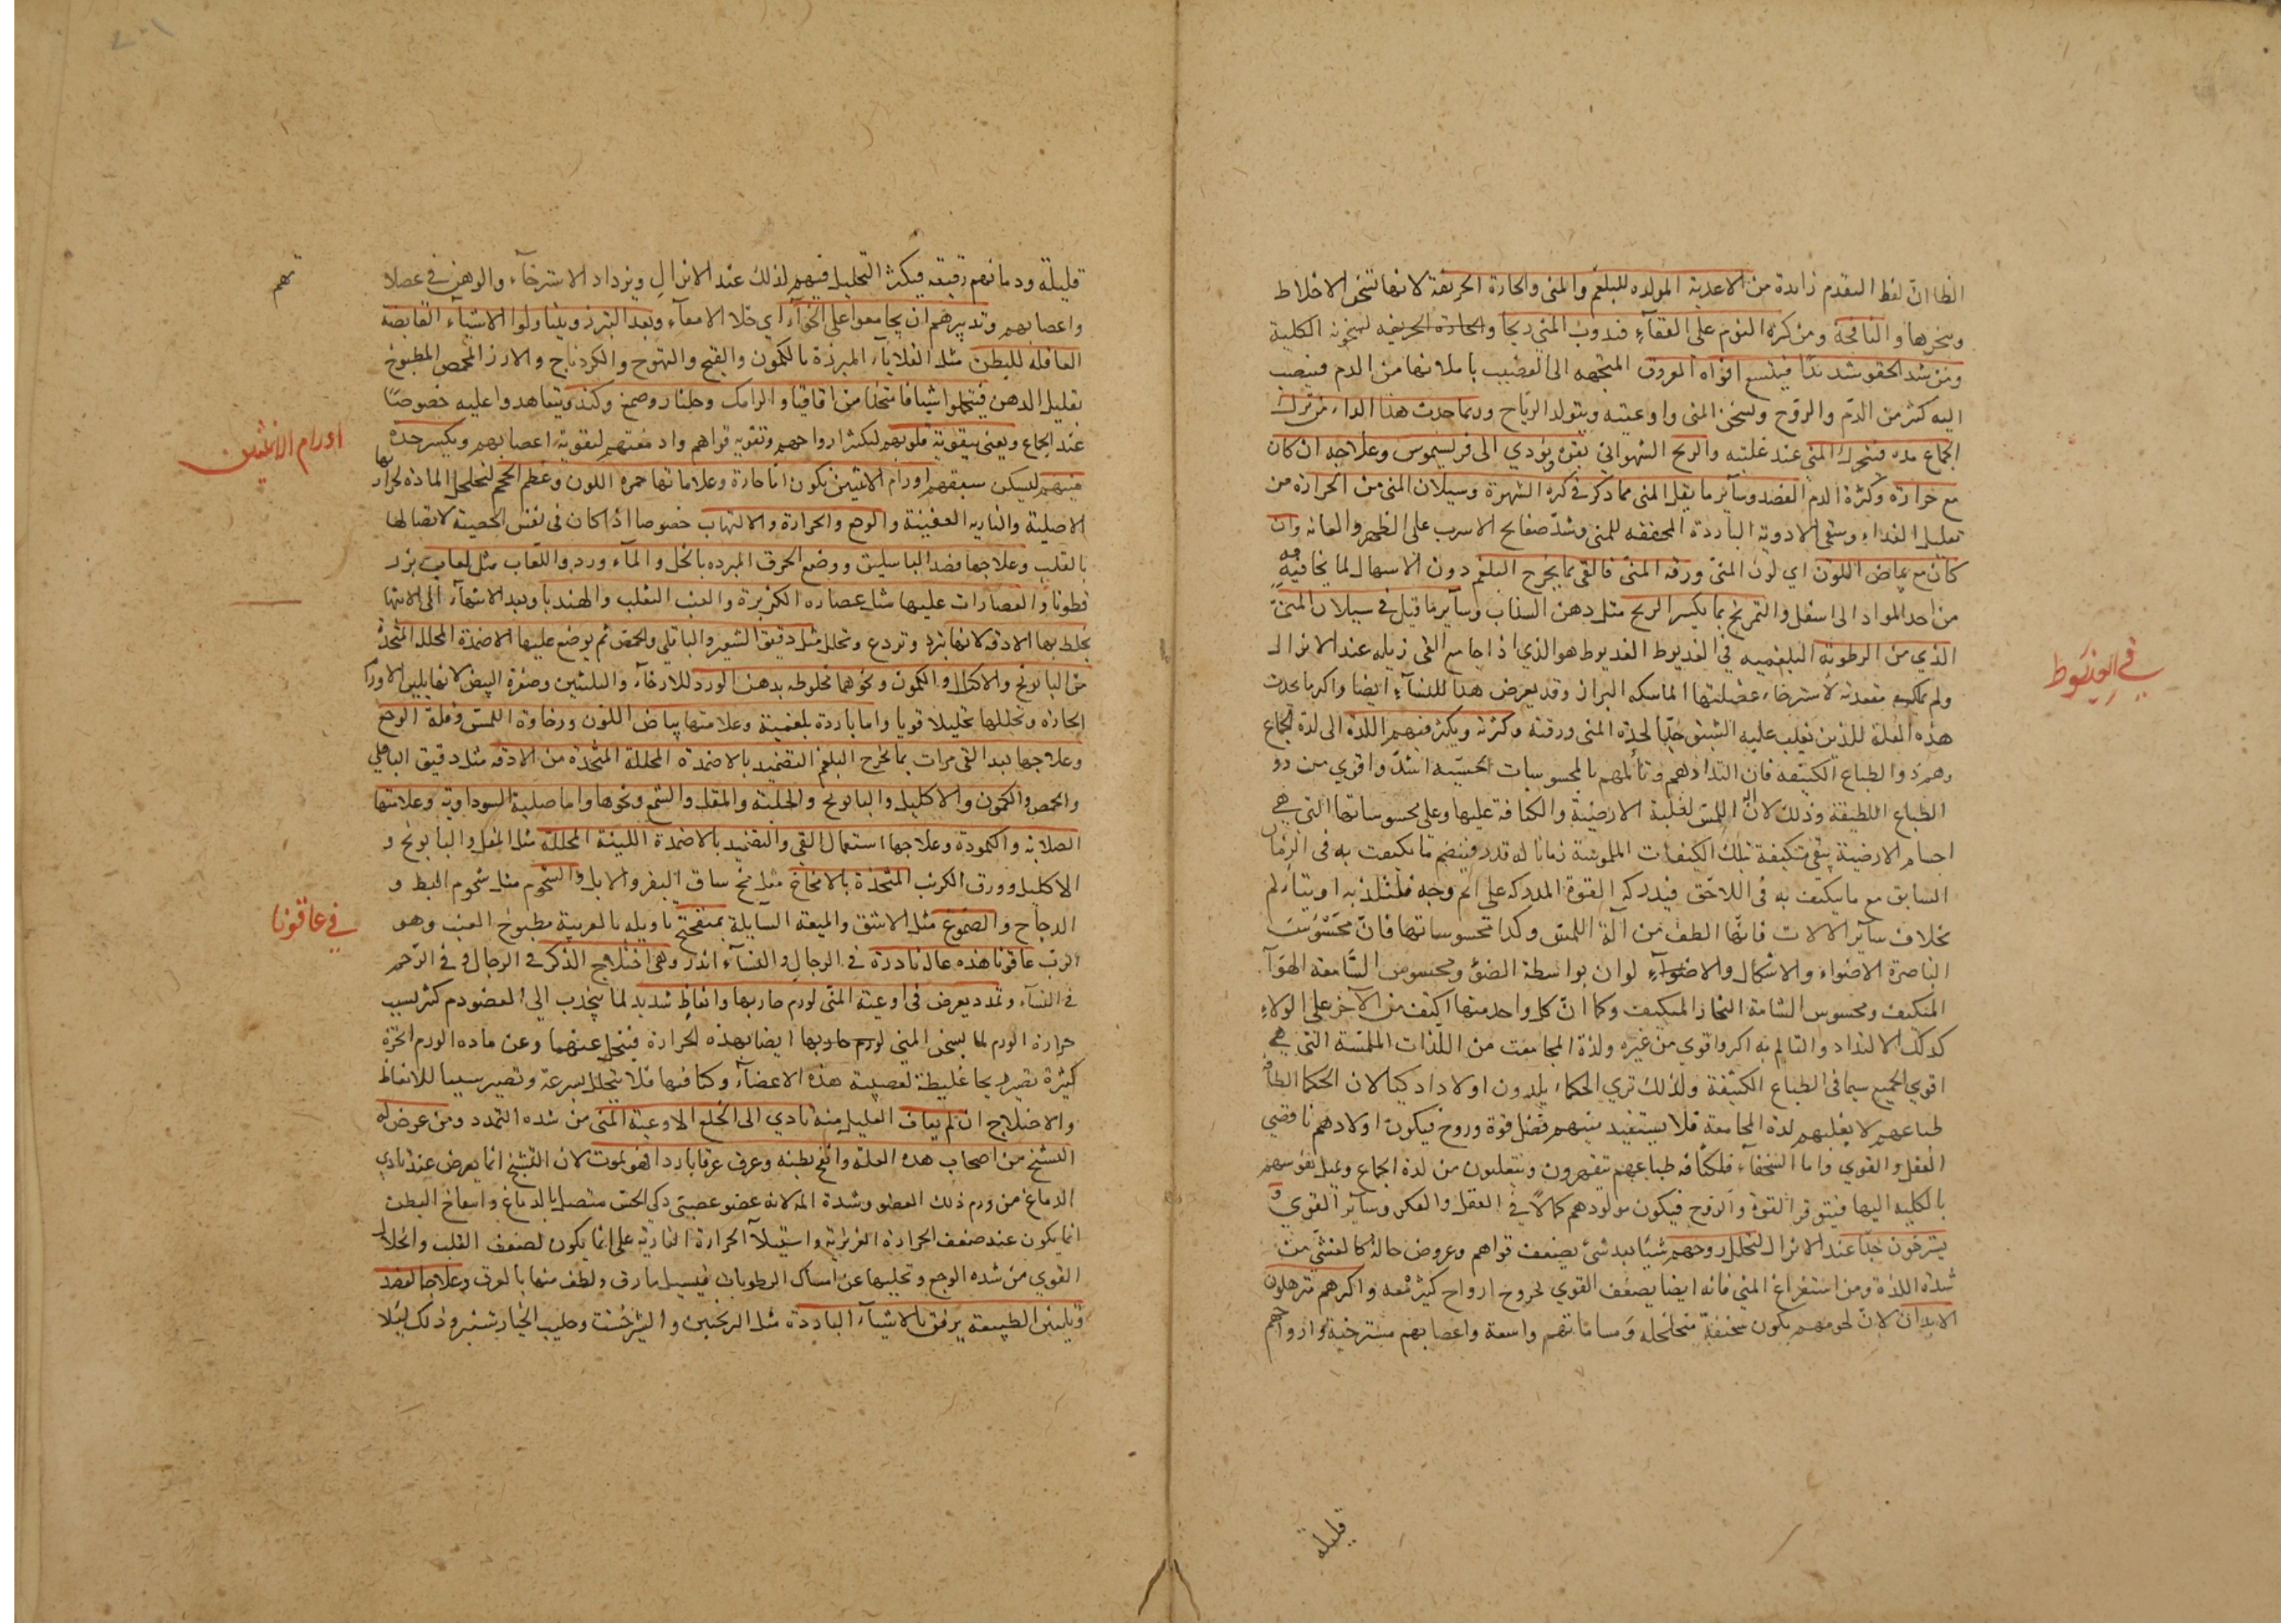 الظاان لفظ التقدم زايدة من الاغدية المولده للبلغم والمنى والحارة الحريفة لانها تسخن الاخلاط
وتبخرها والنافخة ومن كثرة النوم على القفاء فيذوب المني ريحا والحارة الحريفه لسخونة الكلية
ومن شد الحقو شديدا فيتسع افواه العروق المتجهه الى القضيب باملائها من الدم فينصب
اليه كثير من الدم والروح ولسخن المنى واوعيته ويتولد الرياح وربما حدث هذا الداء من ترك
الجماع مدة فيتحرك المنى عند غلبته والريح الشهوانى بقوة ويؤدي الى فريسيموس وعلاجه ان كان
مع حرارة وكثرة الدم الفصد وساير ما يقل المنى مما ذكر في كثرة الشهوة وسيلان المنى من الحرارة من
تقليل الغداء وسقى الادوية الباردة المجففه للمنى وشد صفايح الاسرب على الظهر والعانه وان
كان مع بياض اللون اي لون المنى ورقه المنى فالقى بما يخرج البلغم دون الاسهال لما يخاف فيه
من احد المواد الى اسفل والتمريخ بما يكسر الريح مثل دهن السذاب وساير ما قيل في سيلان المنى
الذي من الرطوبة البلغميه في الغديوط الغديوط هو الذي اذا جامع القى زبله عند الانزال
في الغديوط
ولم يملك مقعدته لاسترخاء عضلتها الماسكه البراز وقد يعرض هذا للنساء ايضا واكثر ما يحدث
هذه العلة للذين يغلب عليه الشبق جدا لحدة المنى ورقته وكثرته ويكثر فيهم اللذة الى لذة الجماع
وهم ذوا لطباع الكثيفه فان التذاذهم وتألمهم بالمحسوسات الحسيه اشد واقوي من ذو
الطباع اللطيفة وذلك لان اللمس لغلبة الارضية والكثافة عليها وعلى محسوساتها التي هي
اجسام الارضية يبقى متكيفة بتلك الكيفيات الملموسة زمانا له قدر فينضم ما تكيفت به في الزمان
السابق مع ما يتكيف به في اللاحق فيدركه القوة المدركه على اتم وجه فيلتذ به او يتألم
بخلاف ساير الالات فانها الطف من آلة اللمس وكذا محسوساتها فان محسوسات
الناصرة الاضواء والاشكال والاضواء لوان بواسطة الضوء ومحسوس السامعه الهوآ
المتكيف ومحسوس الشامة البخار المتكيف وكما ان كل واحد منها اكثف من الآخر على الولاء
كذلك الالتذاذ والتالم به اكثر واقوي من غيره ولذة المجامعت من اللذات الملمسة التي هي
اقوي الجميع سيما في الطباع الكثيفة ولذلك تري الحكماء يلدون اولادا دكيا لان الحكما الطاف
طباعهم لا يغلبهم لذة المجامعة فلا يستفيد منيهم فضل قوة وروح فيكون اولادهم ناقصي
العقل والقوي واما السخفآء فلكثافه طباعهم يتقهرون ويتغلبون من لذة الجماع ويميل نفوسهم
بالكليه اليها فيتوفر القوة والروح فيكون مولودهم كمالا في العقل والفكر وساير القوي و
يسترخون جدا عند الانزال لتحلل روحهم شيئا بعد شئ يضعف قواهم وعروض حالة كالغشي من
شدة اللذة ومن استفراغ المنى فانه ايضا يضعف القوي لخروج ارواح كثيرة معه واكثرهم مترهلون
الابدان لان لحومهم يكون سخيفة متخلخله ومساماتهم واسعة واعصابهم مسترخية وارواحهم
قليلة
قليلة ودمائهم رقيقه فيكثر التحليل فيهم لذلك عند الانزال ويزداد الاسترخآء والوهن في عضلا
تهم
واعصابهم وتدبيرهم ان يجامعوا على الخوآء اي خلا الامعآء وبعد التبرز ويتناولوا الاشيآء القابضة
العاقلة للبطن مثل القلايآء المبزرة بالكمون والقبج والتيهوج والكردناج والارز المحمص المطبوخ
بقليل الدهن فيتحملوا شيافا متخذا من اقاقيا والرامك وجلنار وصمغ وكندر ويتعاهدوا عليه خصوصا
عند الجماع ويعنى بتقوية قلوبهم ليكثر ارواحهم وتقويه قواهم وادمغتهم لتقوية اعصابهم ويكسر حدة
اورام الانثيين
منيهم ليسكن سبقهم اورام الانثيين يكون اما حارة وعلاماتها حمرة اللون وعظم الحجم لتخلخل المادة لحرارتها
الاصلية والنارية العفينية والوجع والحرارة والالتهاب خصوصا اذا كان في نفس الخصية لاتصالها
بالقلب وعلاجها فصد الباسليق ووضع الخرق المبرده بالخل والمآء ورد واللعاب مثل لعاب بزر
قطونا والعصارات عليها مثل عصارة الكزبرة والعنب الثعلب والهندبا وبعد الانتهآء الى الانتها
يخلط بها الادقه لانها تبرد وتردع وتحلل مثل دقيق الشعير والباقلى والحمص ثم يوضع عليها الاضمدة المحلله المتخذة
من البابونج والاكليل والكمون ونحوهما مخلوطه بدهن الورد للارخآء والتليين وصفرة البيض لانها يلين الاورا
الحارة وتحللها تحليلا قويا واما باردة بلغمية وعلامتها بياض اللون ورخاوة اللمس وقلة الوجع
وعلاجها بعد القى مرات بما يخرج البلغم التضميد بالاضمدة المحللة المتخذة من الادقه مثل دقيق الباقلي
والحمص والكمون والاكليل والبابونج والحلبة والمقل والشحم ونحوها واما صلبة السوداوية وعلامتها
الصلابة والكمودة وعلاجها استعمال القي والتضميد بالاضمدة اللينة المحللة مثل المقل والبابونج و
الاكليل وورق الكرنب المتخذة بالامخاخ مثل مخ ساق البقر والابل والشحوم مثل شحوم البط و
في عاقونا
الدجاج والصموغ مثل الاشق والميعة السايلة بمنفجتج تاويله بالعربية مطبوخ العنب وهو
الرب عاقونا هذه عله نادرة في الرجال والنسآء اندر وهي اختلاج الذكر في الرجال وفي الرحم
في النسآء وتمدد يعرض في اوعية المني لورم حار بها وانعاظ شديد لما ينجذب الى العضو دم كثير بسبب
حرارة الورم لما يسخن المنى لورم حار بها ايضا بهذه الحرارة فيتحلل عنهما وعن ماده الورم ابخرة
كثيرة تصير ريحا غليظة لعصبية هذه الاعضآء وكثافتها فلا يتحلل بسرعة وتصير سببا للانعاظ
والاختلاج ان لم يعاف العليل منه تادي الى الخلع الاوعية المنى من شده التمدد ومن عرض له
التشنج من اصحاب هذه العلة وانتفخ بطنه وعرق عرقا باردا فهو يموت لان التشنج انما يعرض عند تادي
الدماغ من ورم ذلك العضو وشدة المه لانه عضو عصبي ذكي الحس متصل بالدماغ وانتفاخ البطن
انما يكون عند ضعف الحرارة الغريزية واستيلآء الحرارة النارية على انما يكون لضعف القلب وانحلال
القوي من شده الوجع وتخليها عن امساك الرطوبات فيسيل ما رق ولطف منها بالعرق وعلاجها الفصد
وتليين الطبيعة برفق بالاشيآء الباردة مثل الترنجبين والشيرخشت وحليب الخيارشنبر وذلك ليلا